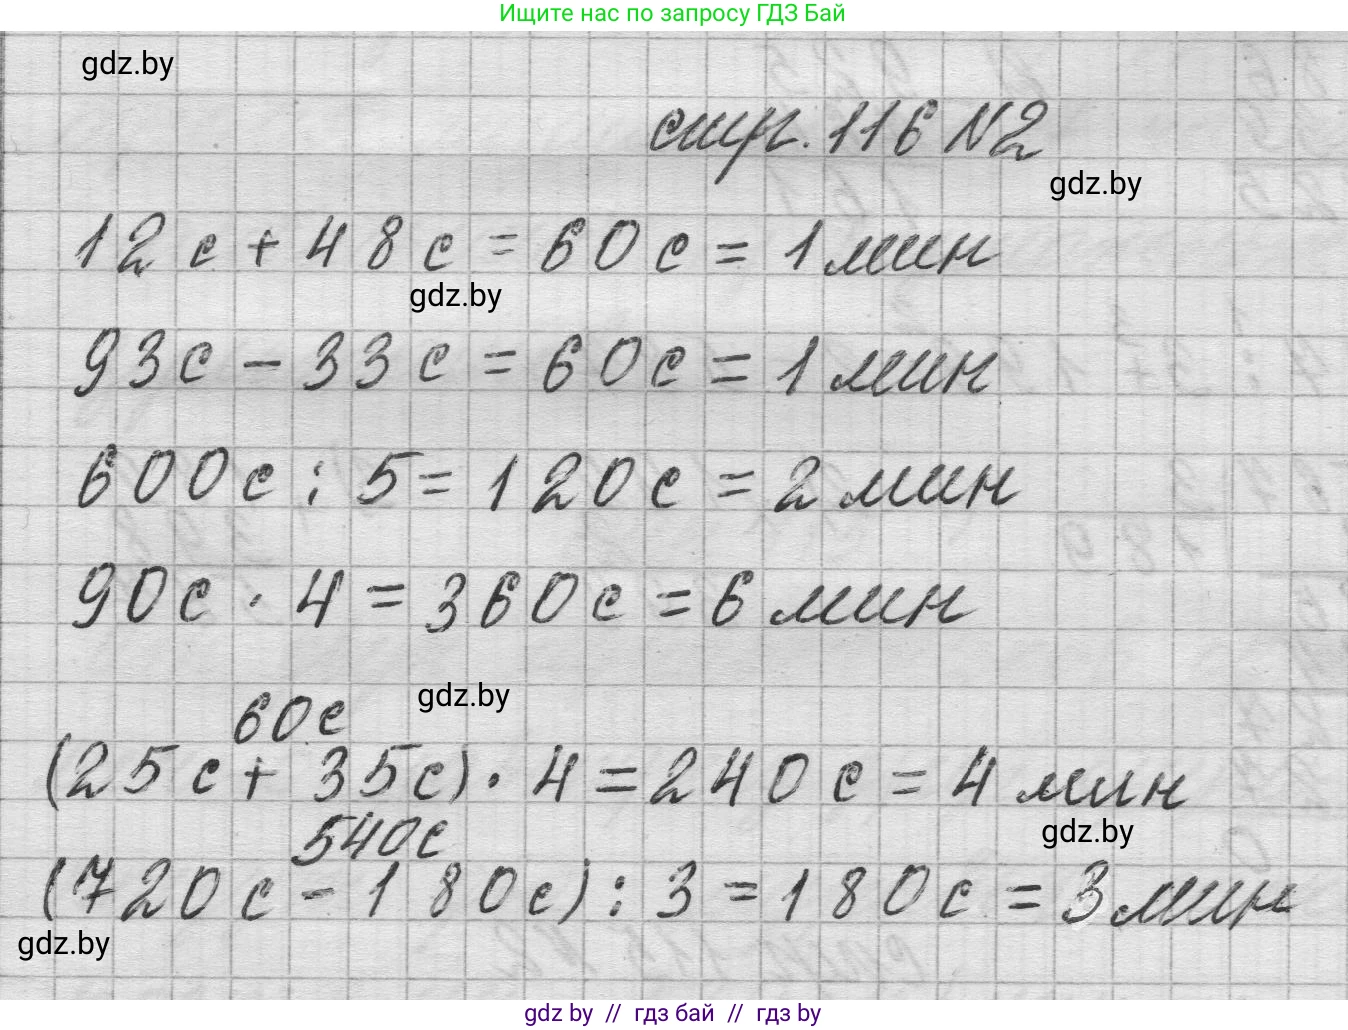 Ищите нас по запросу ГДЗ Бай
gdz.by
стр. 116 N2
gdz.by
12 с + 48 с = 60 с = 1 мин
gdz.by
93 с - 33 с = 60 с = 1 мин
600 с : 5 = 120 с = 2 мин
90 с · 4 = 360 с = 6 мин
gdz.by
60 с
(25 с + 35 с) · 4 = 240 с = 4 мин
gdz.by
540 с
(720 с - 180 с) : 3 = 180 с = 3 мин
gdz.by
gdz by // гдз бай // гдз by